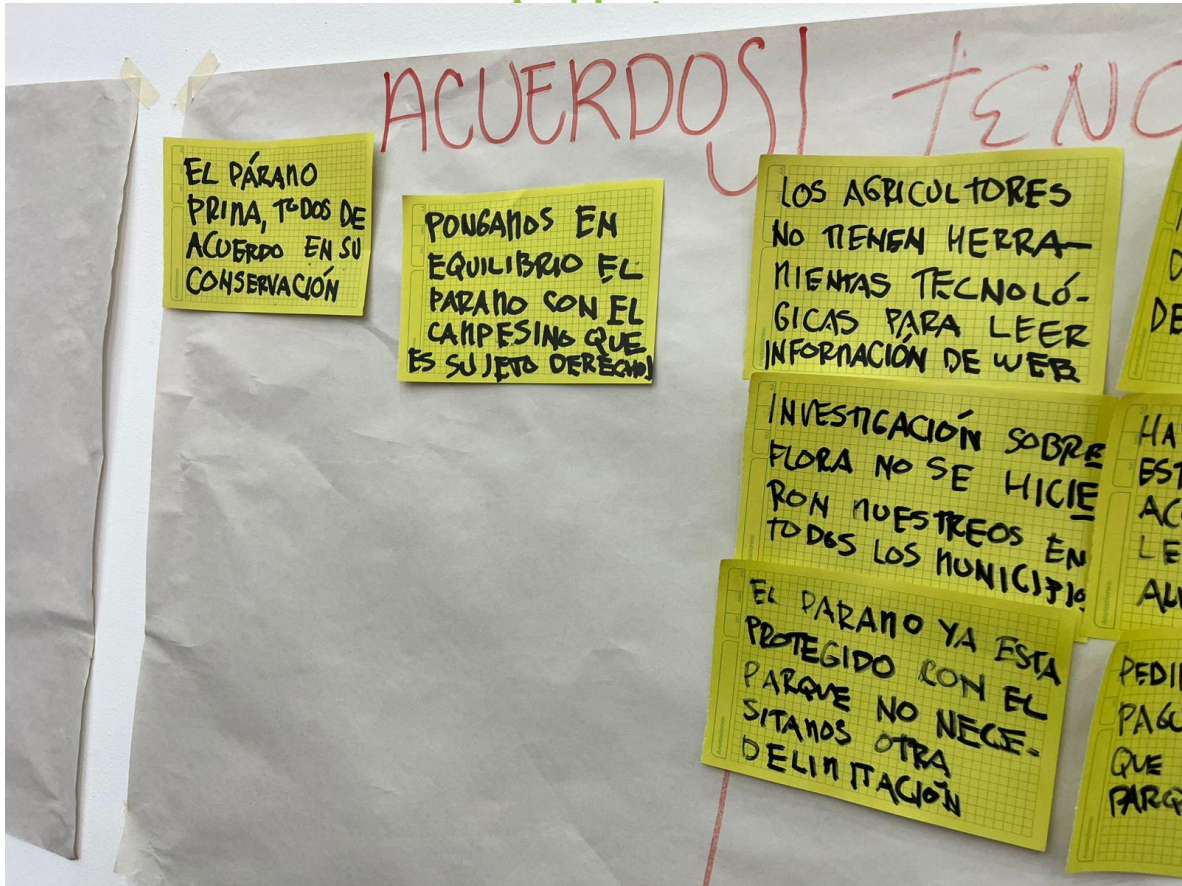 ACUERDOS
EL PÁRAMO
PRIMA, TODOS DE
ACUERDO EN SU
CONSERVACIÓN
PONGAMOS EN
EQUILIBRIO EL
PARAMO CON EL
CAMPESINO QUE
ES SUJETO DERECHOS
LOS AGRICULTORES
NO TIENEN HERRA-
MIENTAS TECNOLÓ-
GICAS PARA LEER
INFORMACIÓN DE WEB
INVESTIGACIÓN SOBRE
FLORA NO SE HICIE
RON MUESTREOS EN
TODOS LOS MUNICIPIO
EL PARAMO YA ESTA
PROTEGIDO CON EL
PARQUE NO NECE-
SITAMOS OTRA
DELIMITACIÓN
DE
HA
EST
AC
LE
QUE